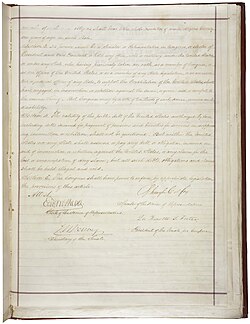 shall bear to the whole number of male citizens twenty
one years of age in such State.
Section 3. No person shall be a Senator or Representative in Congress, or elector of
President and Vice President, or hold any office, civil or military, under the United
States, or under any State, who, having previously taken an oath, as a member of Congress, or
as an officer of the United States, or as a member of any State legislature, or as an
executive or judicial officer of any State, to support the Constitution of the United States, shall have
engaged in insurrection or rebellion against the same, or given aid or comfort to the
enemies thereof. But Congress may by a vote of two thirds of each House, remove such
disability.
Section 4. The validity of the public debt of the United States, authorized by law,
including debts incurred for payment of pensions and bounties for services in suppressing
insurrection or rebellion, shall not be questioned. But neither the United
States nor any State shall assume or pay any debt or obligation incurred in
aid of insurrection or rebellion against the United States, or any claim for the
loss or emancipation of any slave; but all such debts, obligations and claims
shall be held illegal and void.
Section 5. The Congress shall have power to enforce, by appropriate legislation,
the provisions of this article.
Attest
Schuyler Colfax
Speaker of the House of Representatives.
Clerk of the House of Representatives.
La Fayette S. Foster
President of the Senate pro tempore.
Secretary of the Senate